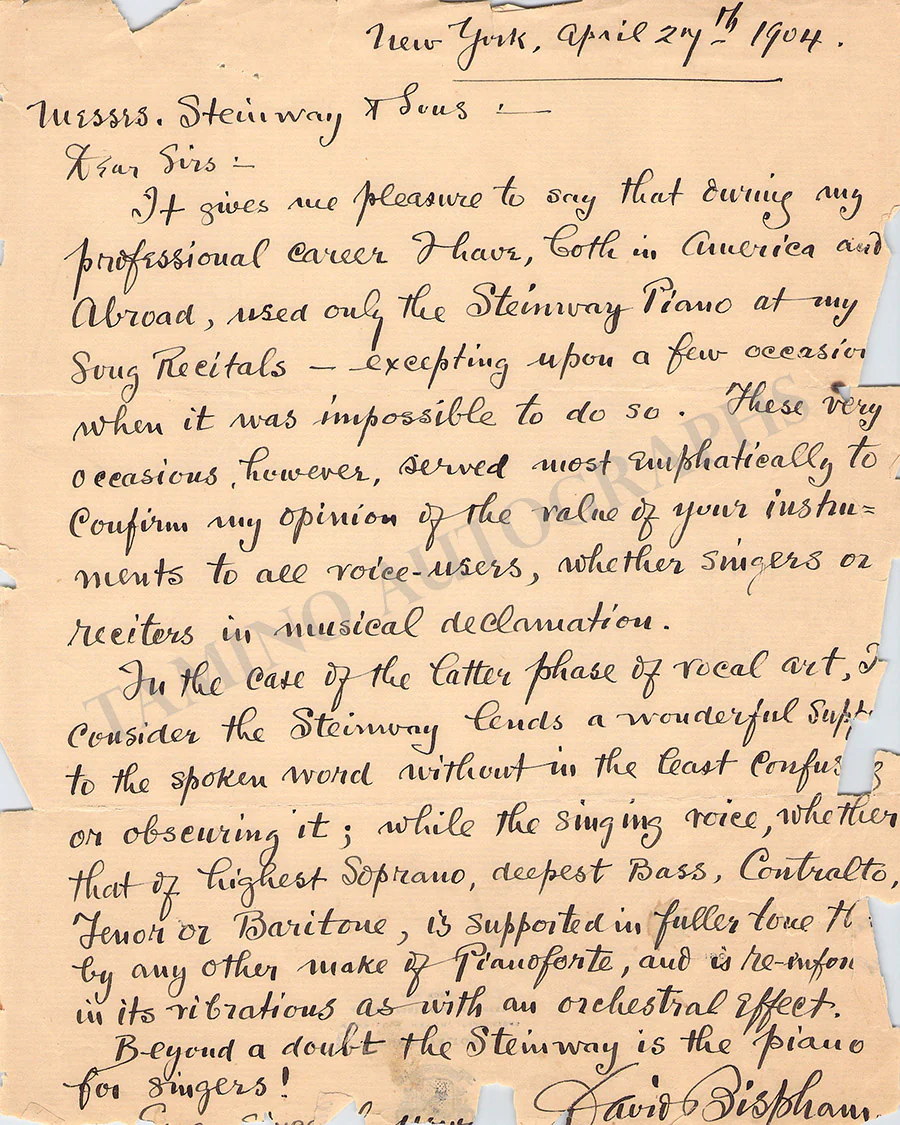 New York, April 27th 1904.
Messes. Steinway & Sons :—
Dear Sirs :—
It gives me pleasure to say that during my
professional career I have, both in America and
Abroad, used only the Steinway Piano at my
Song Recitals — excepting upon a few occasion
when it was impossible to do so. These very
occasions, however, served most emphatically to
Confirm my opinion of the value of your instru=
ments to all voice-users, whether singers or
reciters in musical declamation.
In the case of the latter phase of vocal art, I
consider the Steinway lends a wonderful Supp
to the spoken word without in the least confus g
or obscuring it; while the singing voice, whether
that of highest Soprano, deepest Bass, Contralto,
Tenor or Baritone, is supported in fuller tone th
by any other make of Pianoforte, and is re-infor
in its vibrations as with an orchestral effect.
Beyond a doubt the Steinway is the piano
for singers!
David Bispham.
TAMINO AUTOGRAPHS